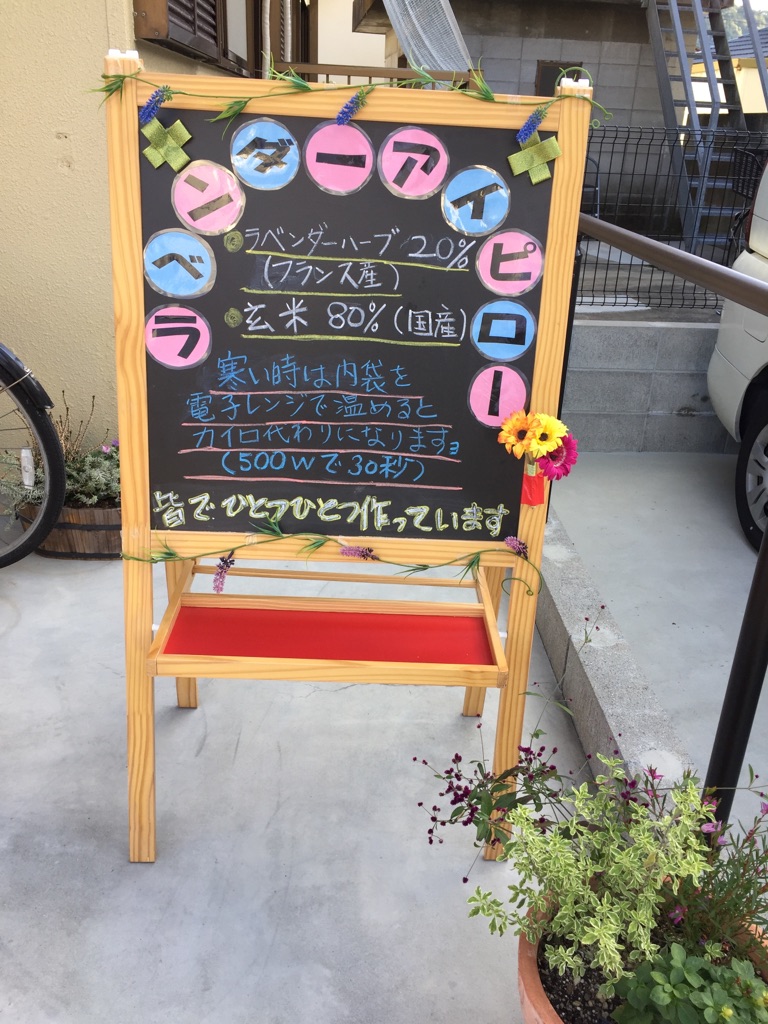 ラベンダーアイピロー
ラベンダーハーブ 20%
(フランス産)
玄米 80%(国産)
寒い時は内袋を
電子レンジで温めると
カイロ代わりになります。
(500Wで30秒)
皆でひとつひとつ作っています